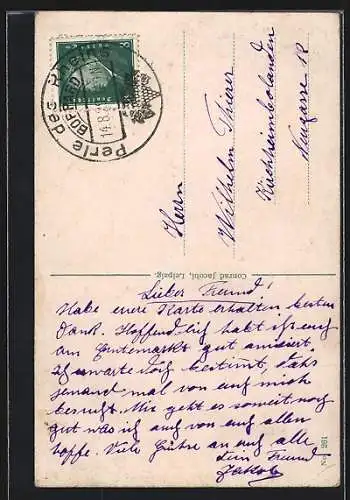 Perle des Rheins
BOPPARD
14.8.
8
Herrn
Wilhelm Thierer
Kirchheimbolanden
Neugasse 12
Conrad Jacobi, Leipzig.
No. 261
Lieber Freund!
Habe eure Karte erhalten, besten
Dank. Hoffendlich habt ihr euch
am Erntemarkt gut amüsiert.
Ich warte doch bestimmt, daß
jemand mal von euch mich
besucht. Mir geht es soweit noch
gut was ich auch von euch allen
hoffe. Viele Grüße an euch alle
dein Freund
Jakob